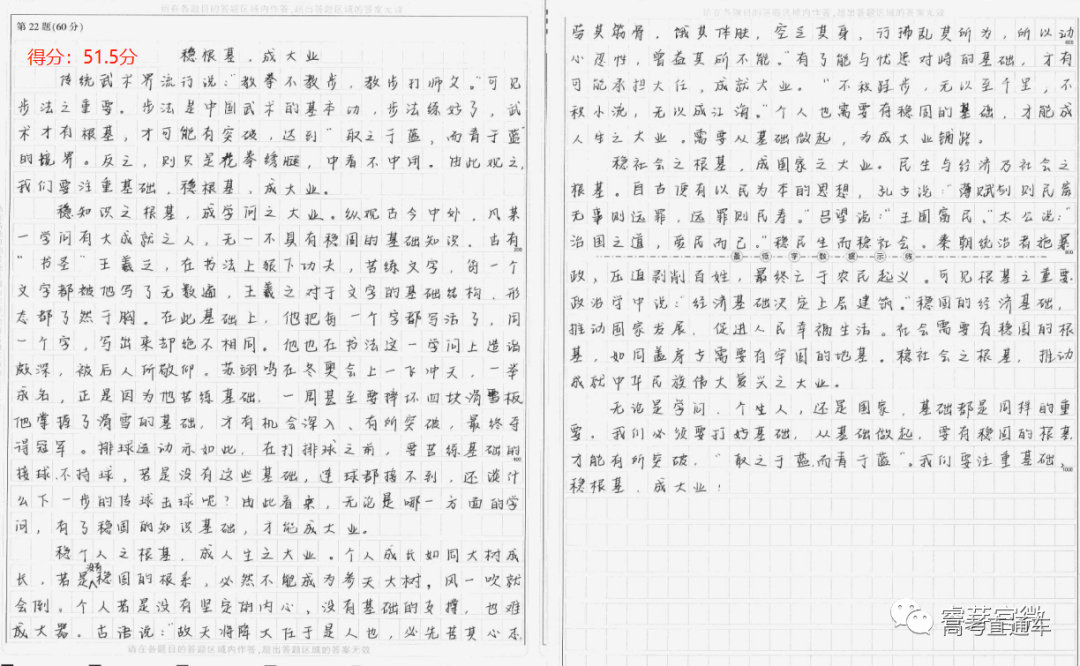 请在各题目的答题区域内作答,超出答题区域的答案无效
第 22 题(60 分)
得分：51.5分
稳根基，成大业
传统武术界流行说："教拳不教步，教步打师父。"可见
步法之重要。步法是中国武术的基本功，步法练好了，武
术才有根基，才可能有突破，达到"取之于蓝，而青于蓝"
的境界。反之，则只是花拳绣腿，中看不中用。由此观之，
我们要注重基础，稳根基，成大业。
稳知识之根基，成学问之大业。纵观古今中外，凡某
一学问有大成就之人，无一不具有稳固的基础知识。古有
200
"书圣"王羲之，在书法上狠下功夫，苦练文字，每一个
文字都被他写了无数遍，王羲之对于文字的基础结构，形
态都了然于胸。在此基础上，他把每一个字都写活了，同
一个字，写出来却绝不相同。他也在书法这一学问上造诣
颇深，被后人所敬仰。苏翊鸣在冬奥会上一飞冲天，一举
成名，正是因为他苦练基础，一周甚至要摔坏四块滑雪板
他掌握了滑雪的基础，才有机会深入、有所突破，最终夺
得冠军。排球运动亦如此，在打排球之前，要苦练基础的
400
接球不持球，若是没有这些基础，连球都接不到，还谈什
么下一步的传球击球呢？由此看来，无论是哪一方面的学
问，有了稳固的知识基础，才能成大业。
稳个人之根基，成人生之大业。个人成长如同大树成
长，若是没有稳固的根系，必然不能成为参天大树，风一吹就
会倒。个人若是没有坚定的内心，没有基础的支撑，也难
成大器。古语说："故天将降大任于是人也，必先苦其心志
请在各题目的答题区域内作答,超出答题区域的答案无效
请在各题目的答题区域内作答,超出答题区域的答案无效
劳其筋骨，饿其体肤，空乏其身，行拂乱其所为，所以动
600
心忍性，曾益其所不能。"有了能与忧患对峙的基础，才有
可能承担大任，成就大业。"不积跬步，无以至千里，不
积小流，无以成江海。"个人也需要有稳固的基础，才能成
人生之大业。需要从基础做起，为成大业铺路。
稳社会之根基，成国家之大业。民生与经济乃社会之
根基。自古便有以民为本的思想，孔子说："薄赋敛则民富
无事则远罪，远罪则民寿。"吕望说："王国富民。"太公说："
治国之道，爱民而已。"稳民生而稳社会。秦朝统治者施暴
800
最低字数提示线
政，压迫剥削百姓，最终之于农民起义。可见根基之重要
政治学中说："经济基础决定上层建筑。"稳固的经济基础，
推动国家发展，促进人民幸福生活。社会需要有稳固的根
基，如同盖房子需要有牢固的地基。稳社会之根基，推动
成就中华民族伟大复兴之大业。
无论是学问、个生人，还是国家，基础都是同样的重
要。我们必须要打好基础，从基础做起，要有稳固的根基
才能有所突破，"取之于蓝，而青于蓝"。我们要注重基础，
1000
稳根基，成大业！
高考直通车